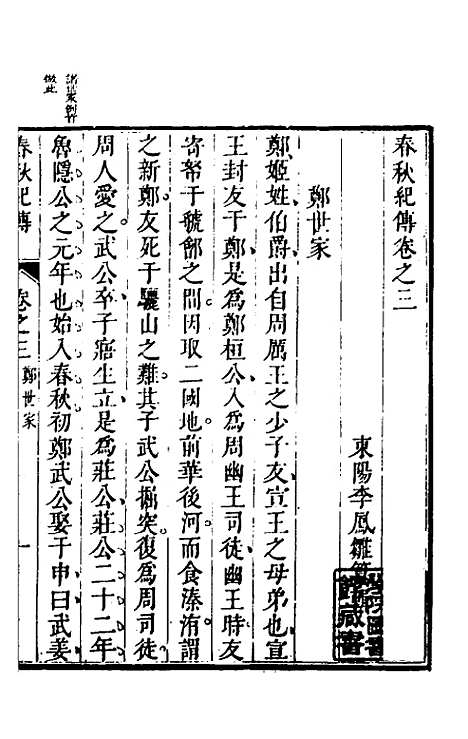 春秋紀傳卷之三
東陽李鳳雛
鄭世家
鄭姬姓伯爵出自周厲王之少子友宣王之母弟也宣
王封友于鄭是為鄭桓公入為周幽王司徒幽王時友
寄帑于虢鄶之間因取二國地前華後河而食溱洧謂
之新鄭友死于驪山之難其子武公掘突復為周司徒
周人愛之武公卒子寤生立是為莊公莊公二十二年
魯隱公之元年也始入春秋初鄭武公娶于申曰武姜
春秋紀傳
卷之三 鄭世家
一
諸世家倒書
倣此
藏書